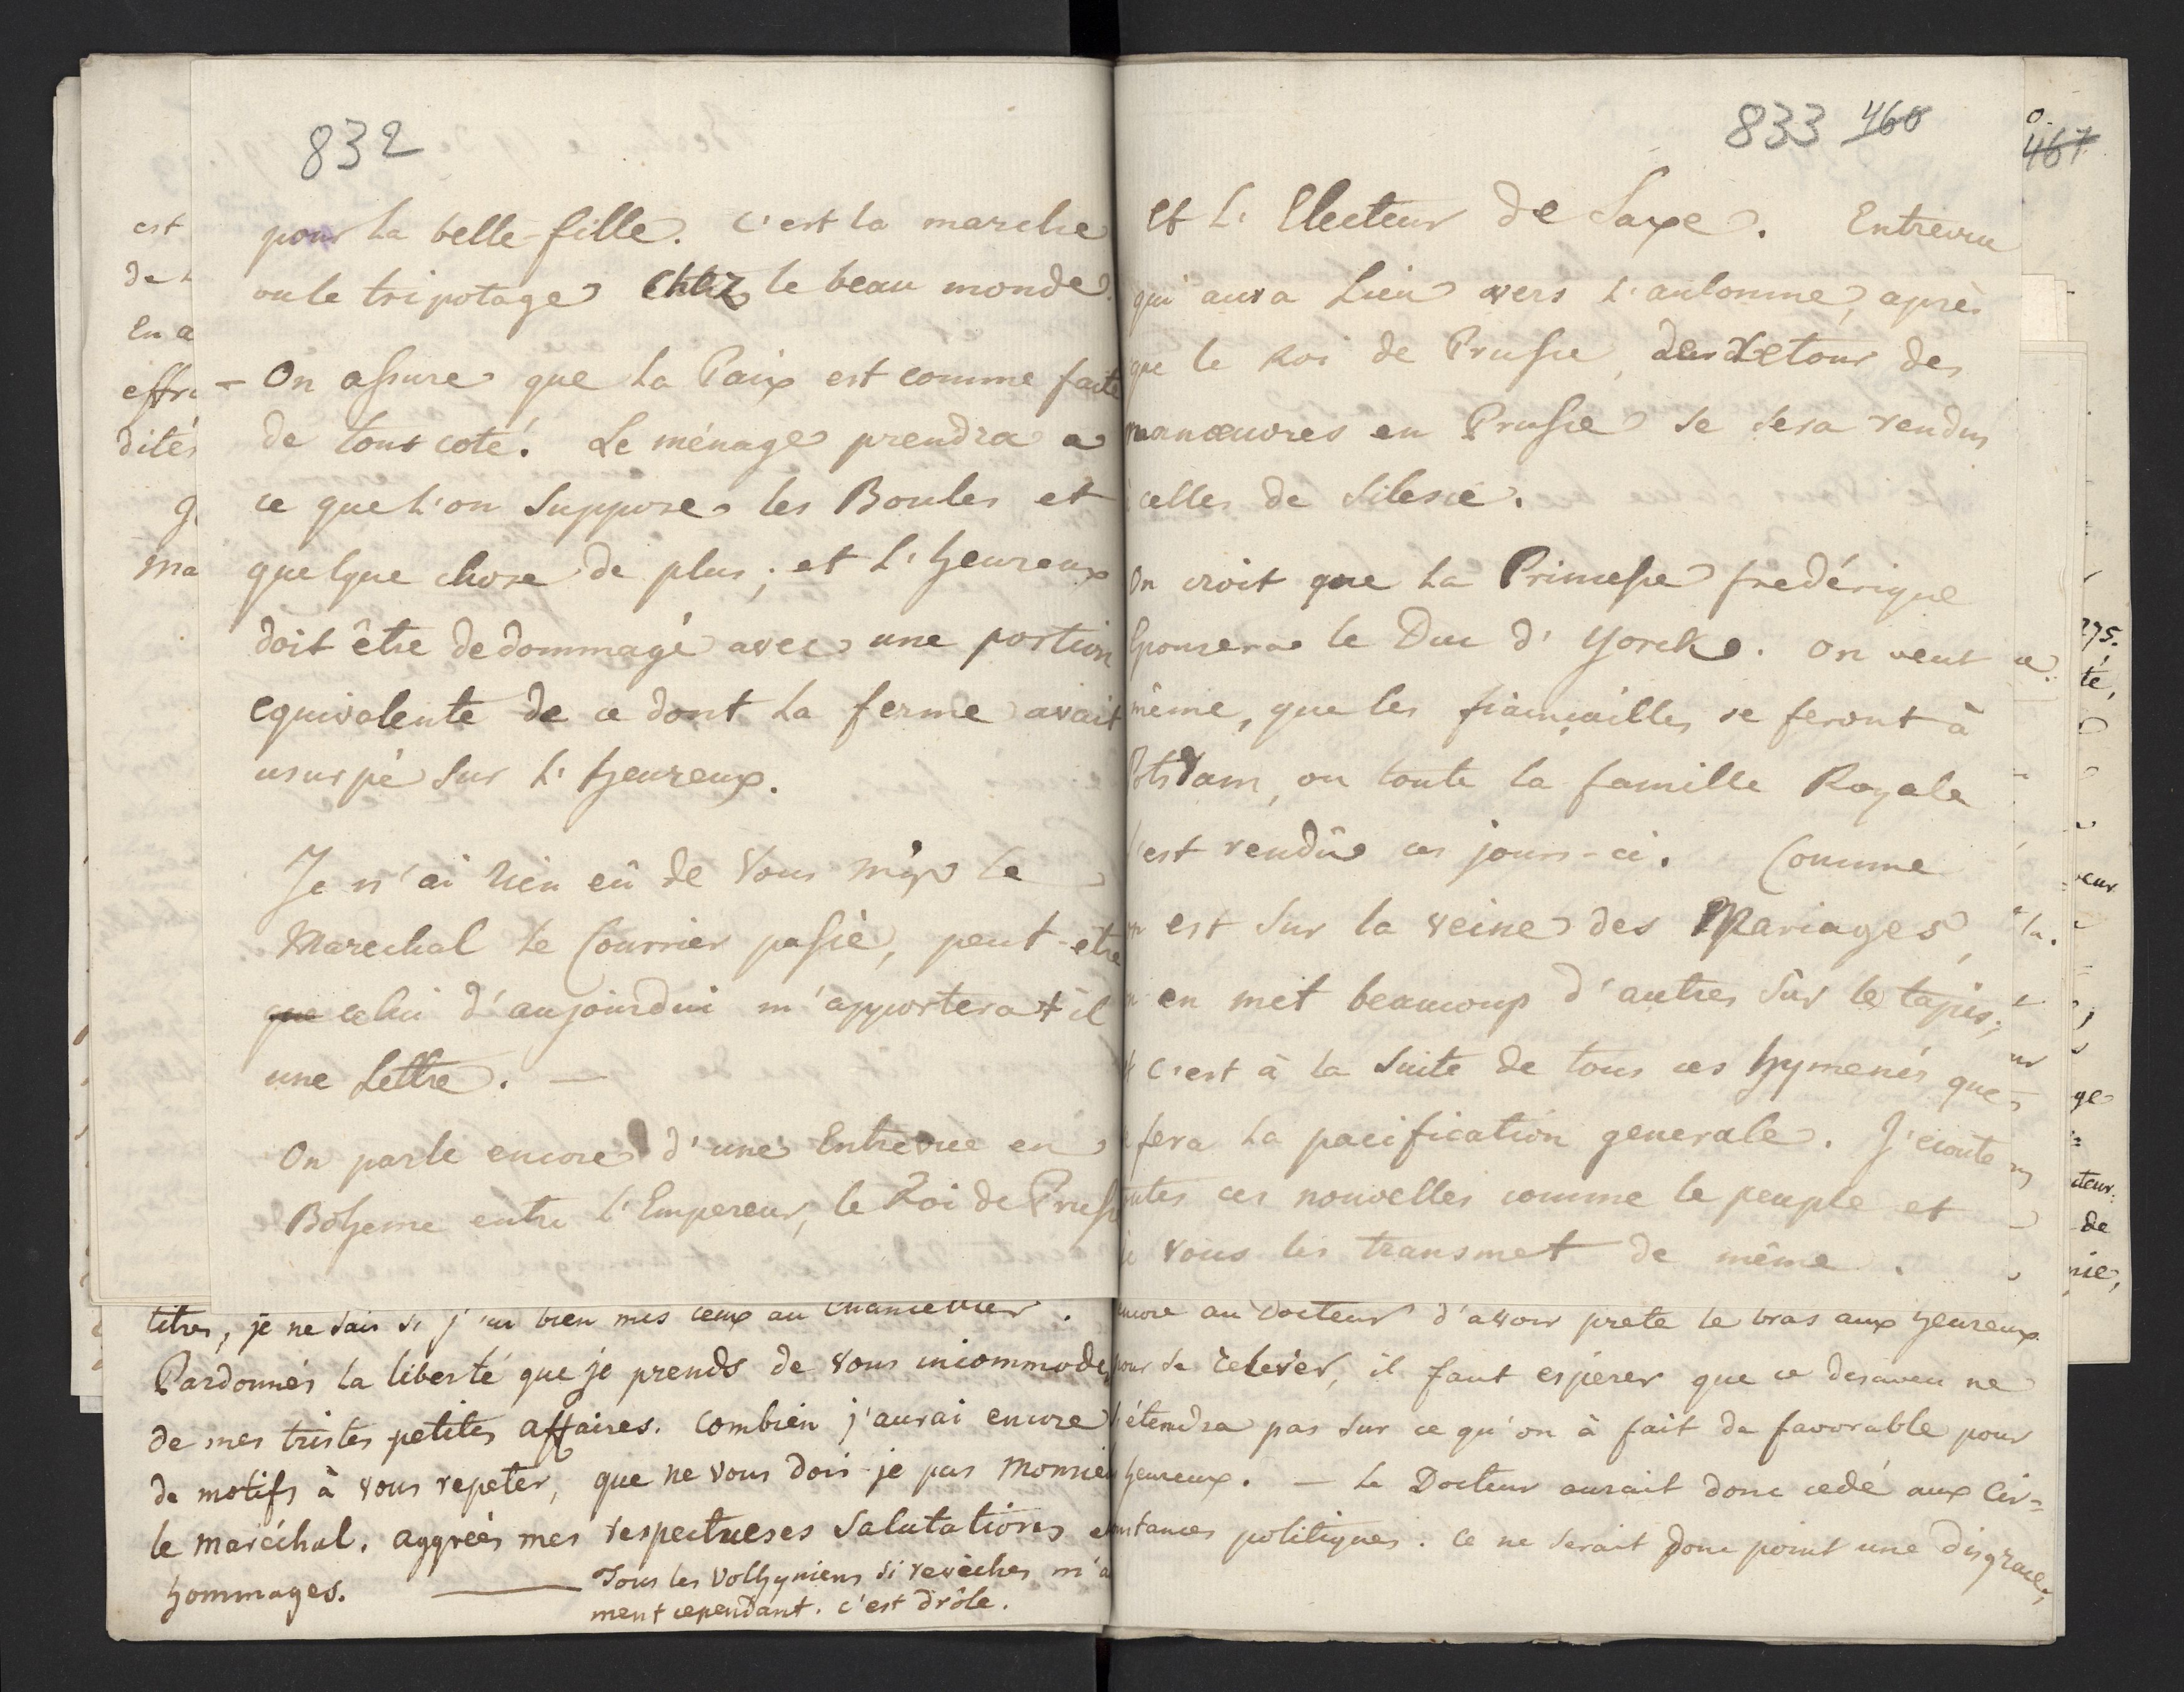 832
pour la belle-fille. c'est la marche
ou le tripotage chez le beau monde.
- On assure que la Paix est comme faite
de tout coté. Le ménage prendra a
ce que l'on suppose les Boules et
quelque chose de plus; et l'heureux
doit être dedommagé avec une portion
equivalente de ce dont la ferme avait
usurpé sur l'heureux.
Je n'ai rien eû de vous le
Marechal le Courrier passé, peut-etre
que celui d'aujourdui m'apporterat il
une Lettre. —
On parle encore d'une Entrevue en
Boheme entre l'Empereur, le Roi de Pruss
titres, je ne sais si j'ai bien mis ceux au Chancelier.
Pardonnés la liberté que je prends de vous incommode
de mes tristes petites affaires. Combien j'aurai encore
de motifs à vous repeter, que ne vous dois-je pas Monsieu
le maréchal. aggreés mes respectueses salutations e
hommages. — Tous les Volhyniens si revèches m'a
ment cependant. c'est drôle.
est
de
En a
effra
dités
g
ma
833 460
et L'Electeur de Saxe. Entrevue
qui aura Lieu vers l'automne, après
que le Roi de Prusse, de retour des
manœuvres en Prusse se sera rendus
celles de Silesie.
On croit que la Princesse frédérique
Epousera le Duc d'Yorck. on veut
même, que les fiançailles se feront à
Potsdam, ou toute la famille Royale
s'est rendüe ces jours-ci. Comme
on est sur la veine des Mariages,
n en met beaucoup d'autres sur le tapis;
et c'est à la suite de tous ces hymenés que
fera la pacification generale. J'ecoute
utes ces nouvelles comme le peuple et
je vous les transmet de même.
ncore au Docteur d'avoir preté le bras aux heureux
pour se relever, il faut esperer que ce desaveu ne
s'étendra pas sur ce qu'on à fait de favorable pour
heureux. — Le Docteur aurait donc cedé aux Cir=
nstances politiques. Ce ne serait donc point une disgrace;
467
275.
té,
eur
la.
ge
cteur.
de
nie,